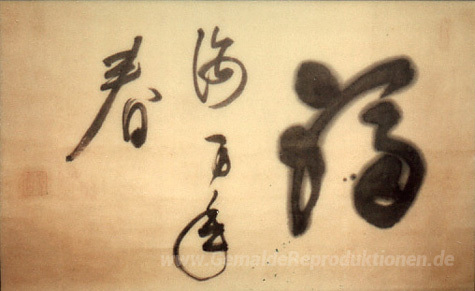 福
海万年
春
www.GemaldeReproduktionen.de